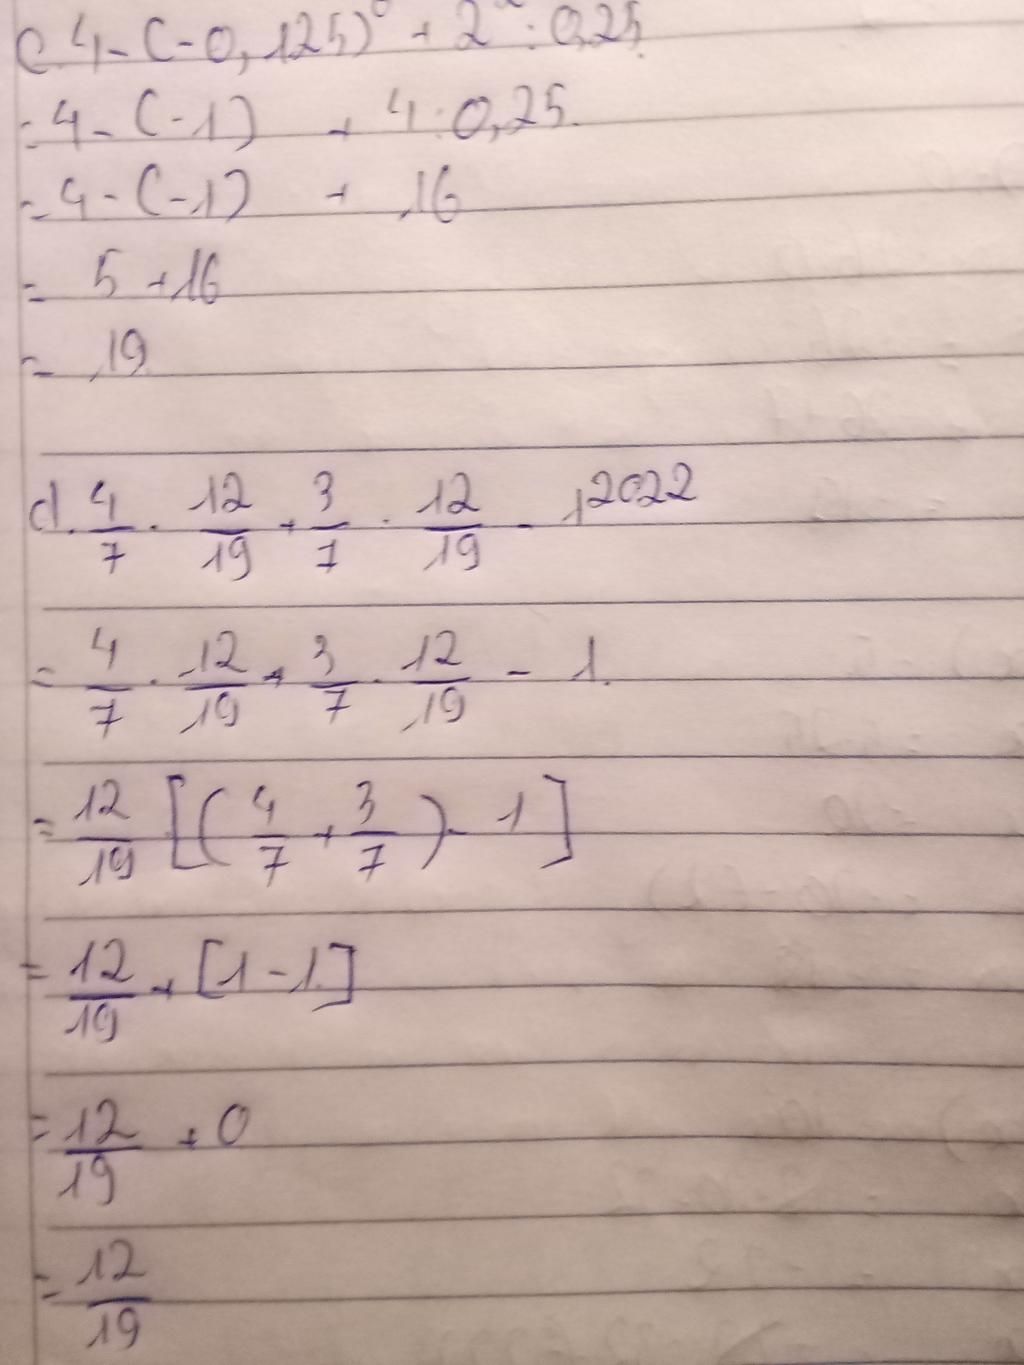 c. 4 - (-0,125)⁰ + 2² : 0,25.
= 4 - (-1) + 4 : 0,25.
= 4 - (-1) + 16
= 5 + 16
= 19
d. 4/7 . 12/19 + 3/7 . 12/19 - 1²⁰²²
= 4/7 . 12/19 + 3/7 . 12/19 - 1.
= 12/19 [(4/7 + 3/7) - 1]
= 12/19 + [1 - 1]
= 12/19 + 0
= 12/19